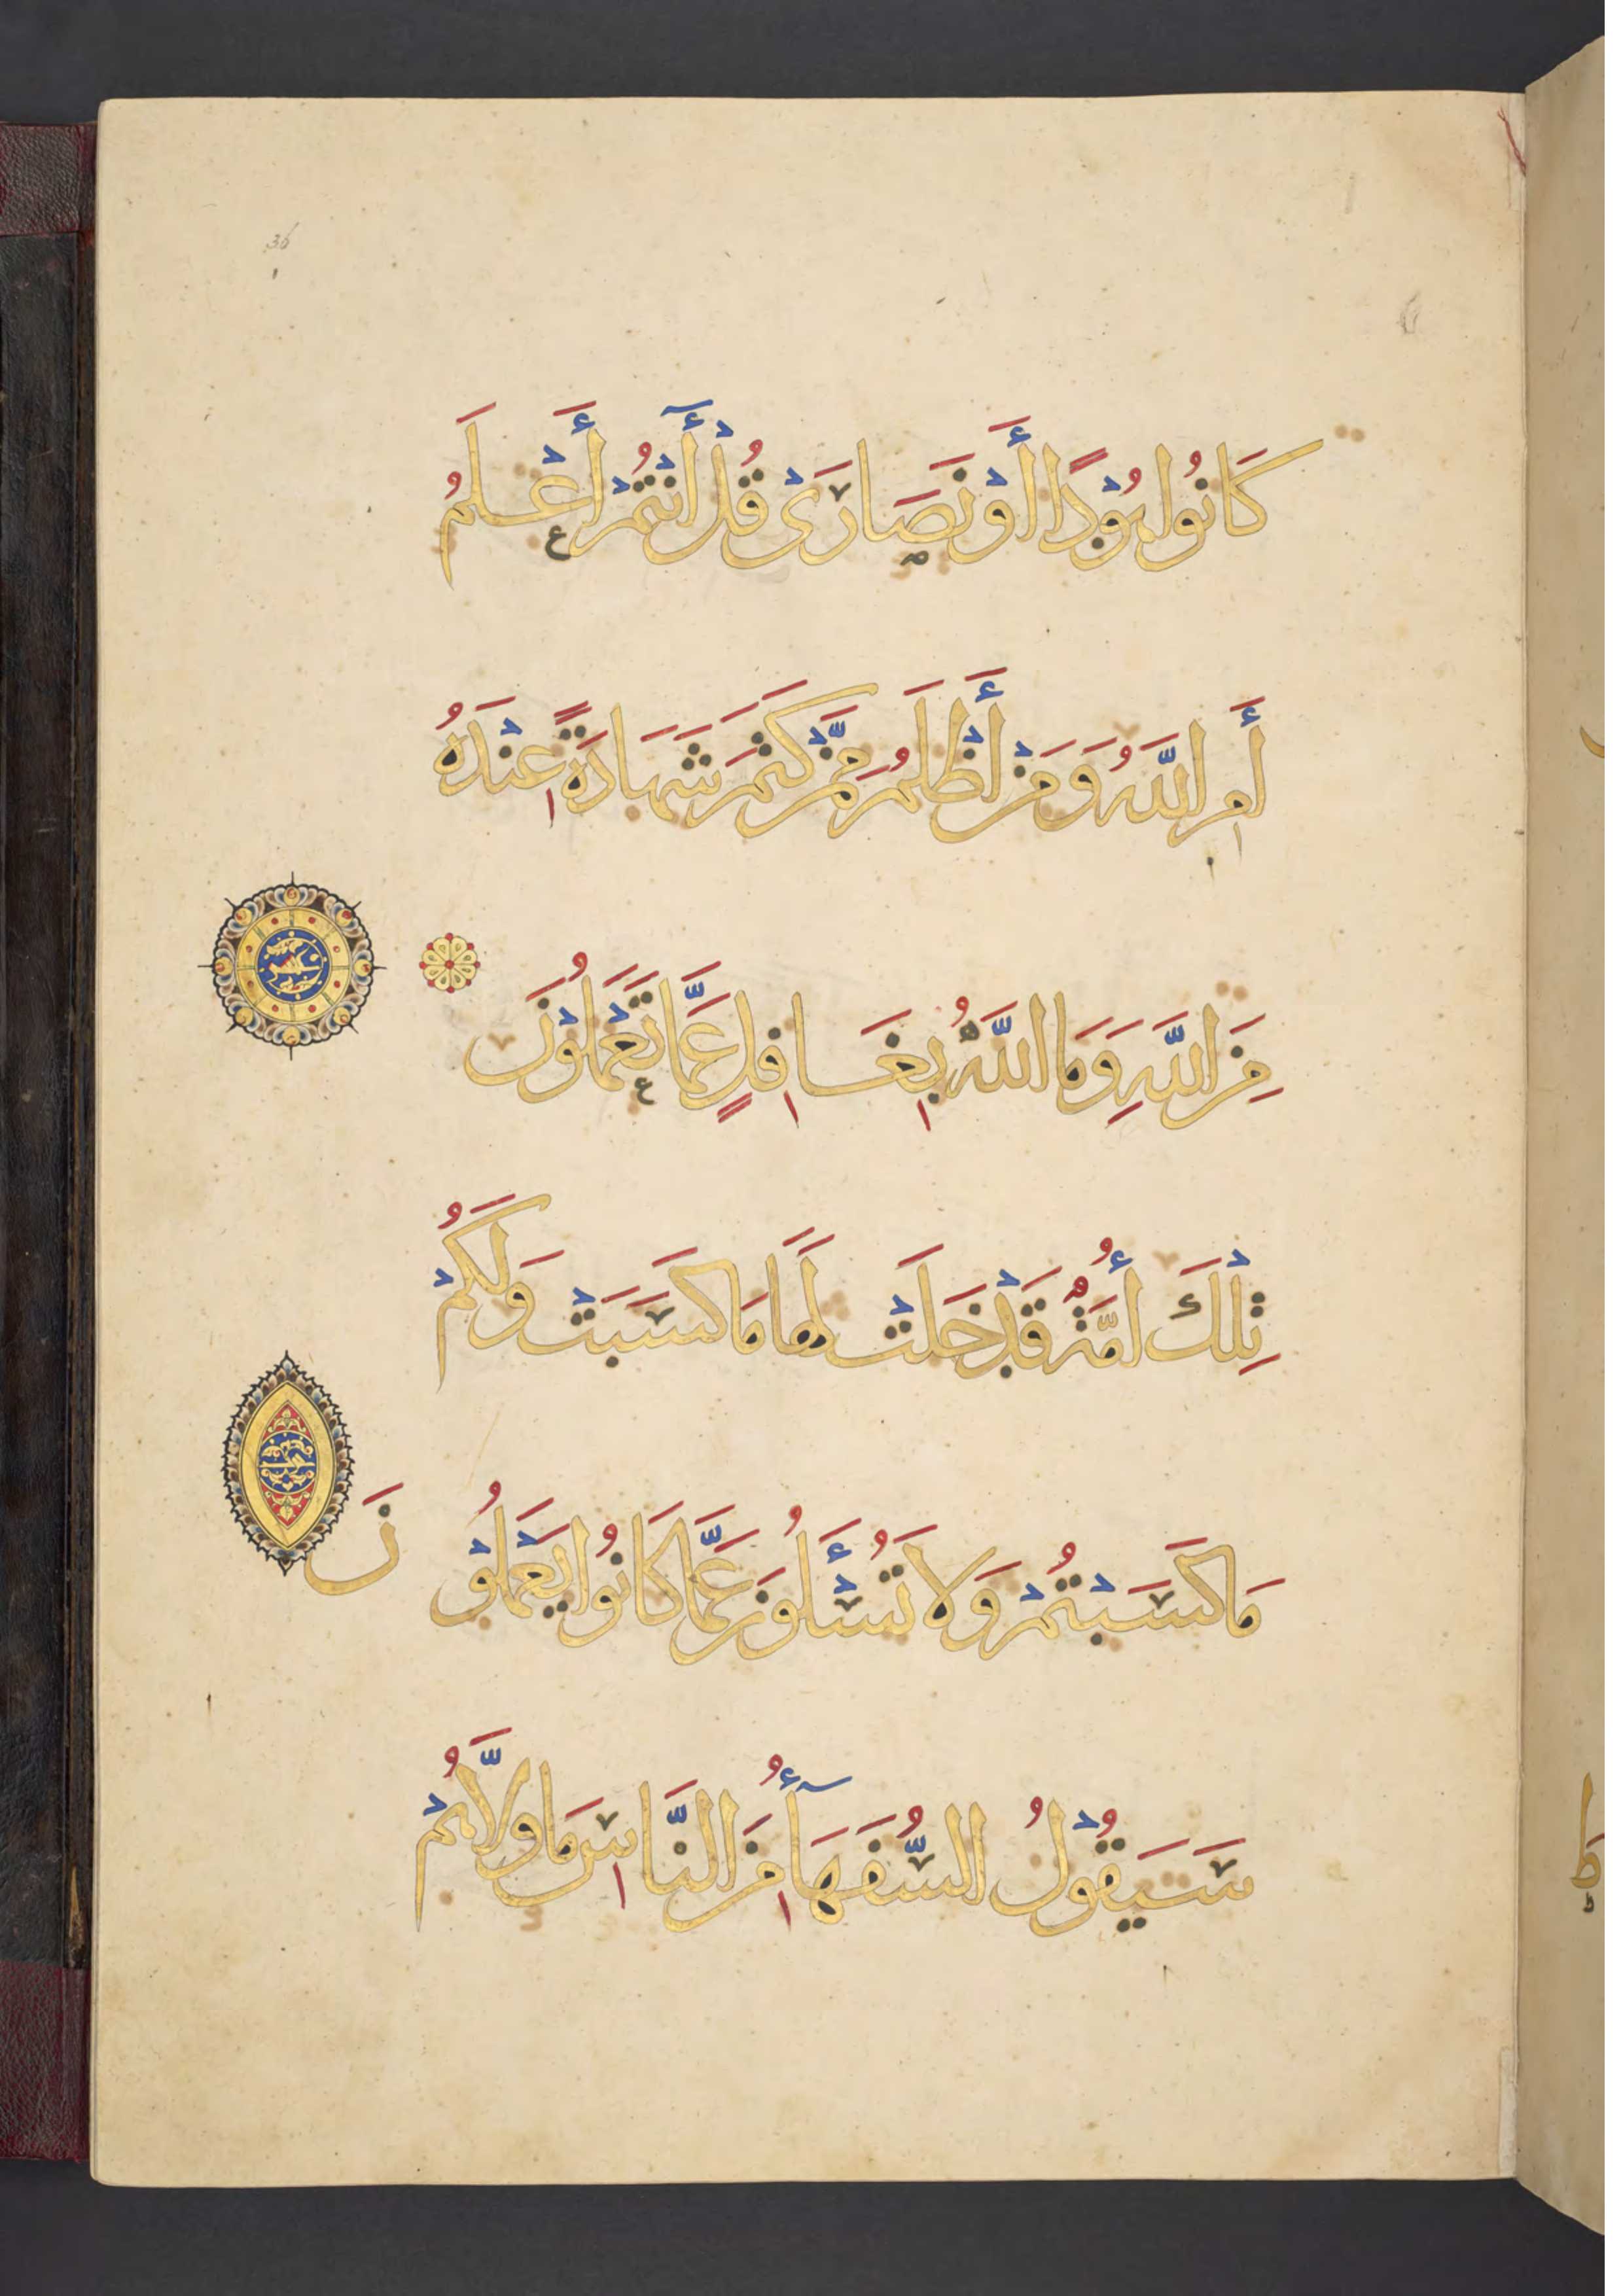 36
كَانُوا هُوْدًا أَوْ نَصَارَىْ قُلْ أَأَنْتُمْ أَعْلَمُ
أَمِ اللَّهُ وَمَنْ أَظْلَمُ مِمَّنْ كَتَمَ شَهَادَةً عِنْدَهُ
مِنَ اللَّهِ وَمَا اللَّهُ بِغَافِلٍ عَمَّا تَعْمَلُوْنَ
تِلْكَ أُمَّةٌ قَدْ خَلَتْ لَهَا مَا كَسَبَتْ وَلَكُمْ
مَا كَسَبْتُمْ وَلَا تُسْأَلُوْنَ عَمَّا كَانُوا يَعْمَلُوْنَ
سَيَقُوْلُ السُّفَهَآءُ مِنَ النَّاسِ مَا وَلَّاهُمْ